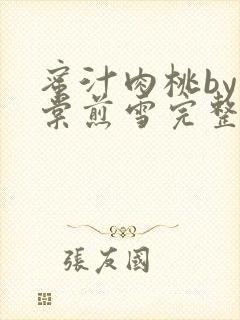 蜜汁肉桃by
棠煎雪完整
張友國